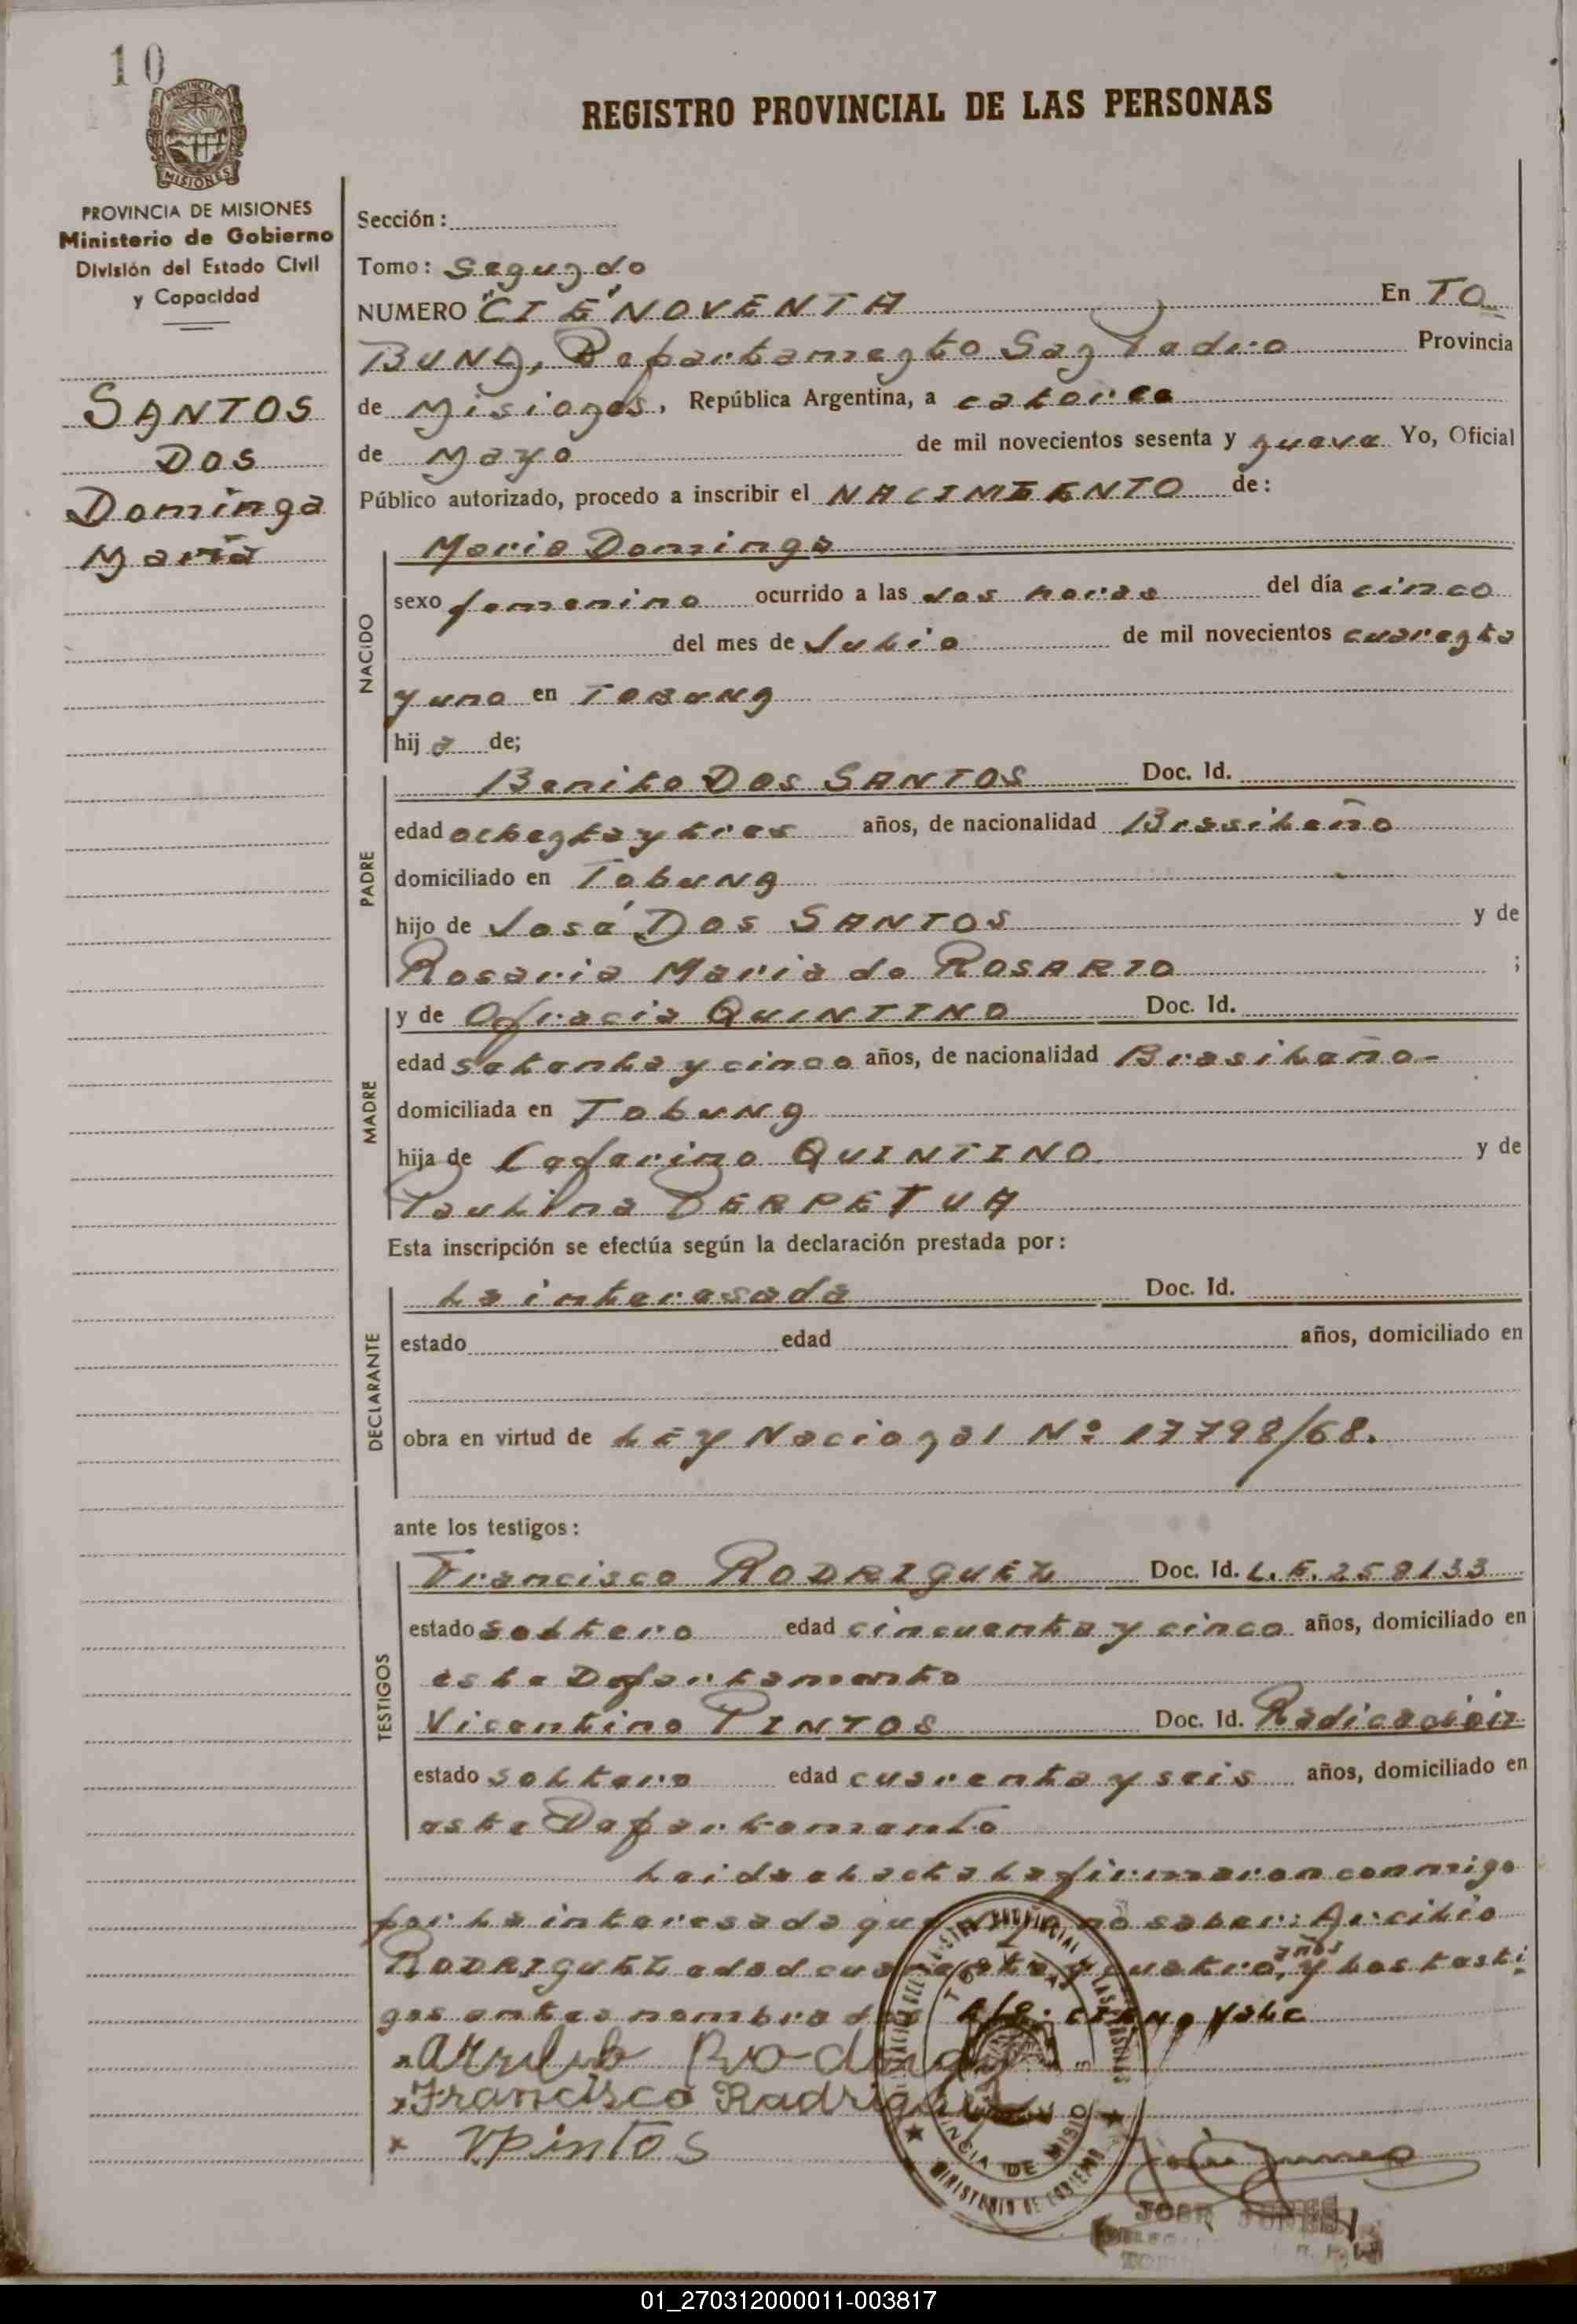 10
PROVINCIA DE MISIONES
REGISTRO PROVINCIAL DE LAS PERSONAS
PROVINCIA DE MISIONES
Ministerio de Gobierno
División del Estado Civil
y Capacidad
SANTOS
DOS
Dominga
Maria
Sección:
Tomo: Segundo
NUMERO "CIE" NOVENTA En TO
BUNA, Departamento San Pedro Provincia
de Misiones, República Argentina, a catorce
de Mayo de mil novecientos sesenta y nueve Yo, Oficial
Público autorizado, procedo a inscribir el NACIMIENTO de:
NACIDO
Maria Dominga
sexo femenino ocurrido a las dos horas del día cinco
del mes de Julio de mil novecientos cuarenta
y uno en TOBUNA
hija de;
PADRE
Benito DOS SANTOS Doc. Id.
edad ochenta y tres años, de nacionalidad Brasileño
domiciliado en Tobuna
hijo de José DOS SANTOS y de
Rosaria Maria do ROSARIO ;
MADRE
y de Ofracia QUINTINO Doc. Id.
edad setenta y cinco años, de nacionalidad Brasileño-
domiciliada en Tobuna
hija de Ceferino QUINTINO y de
Paulina PERPETUA
Esta inscripción se efectúa según la declaración prestada por:
DECLARANTE
La interesada Doc. Id.
estado edad años, domiciliado en
obra en virtud de LEY Nacional Nº 17798/68.
ante los testigos:
TESTIGOS
Francisco RODRIGUEZ Doc. Id. L.E. 258133
estado soltero edad cincuenta y cinco años, domiciliado en
este Departamento
Vicentino PINTOS Doc. Id. Radicación
estado soltero edad cuarenta y seis años, domiciliado en
este Departamento
Leida el acta la firmaron conmigo
por la interesada que no saber: Arcilio
RODRIGUEZ edad cuarenta y cuatro años, y los testi
gos antes nombrados vale
Francisco Rodriguez
x VPintos
MINISTERIO DE GOBIERNO
01_270312000011-003817